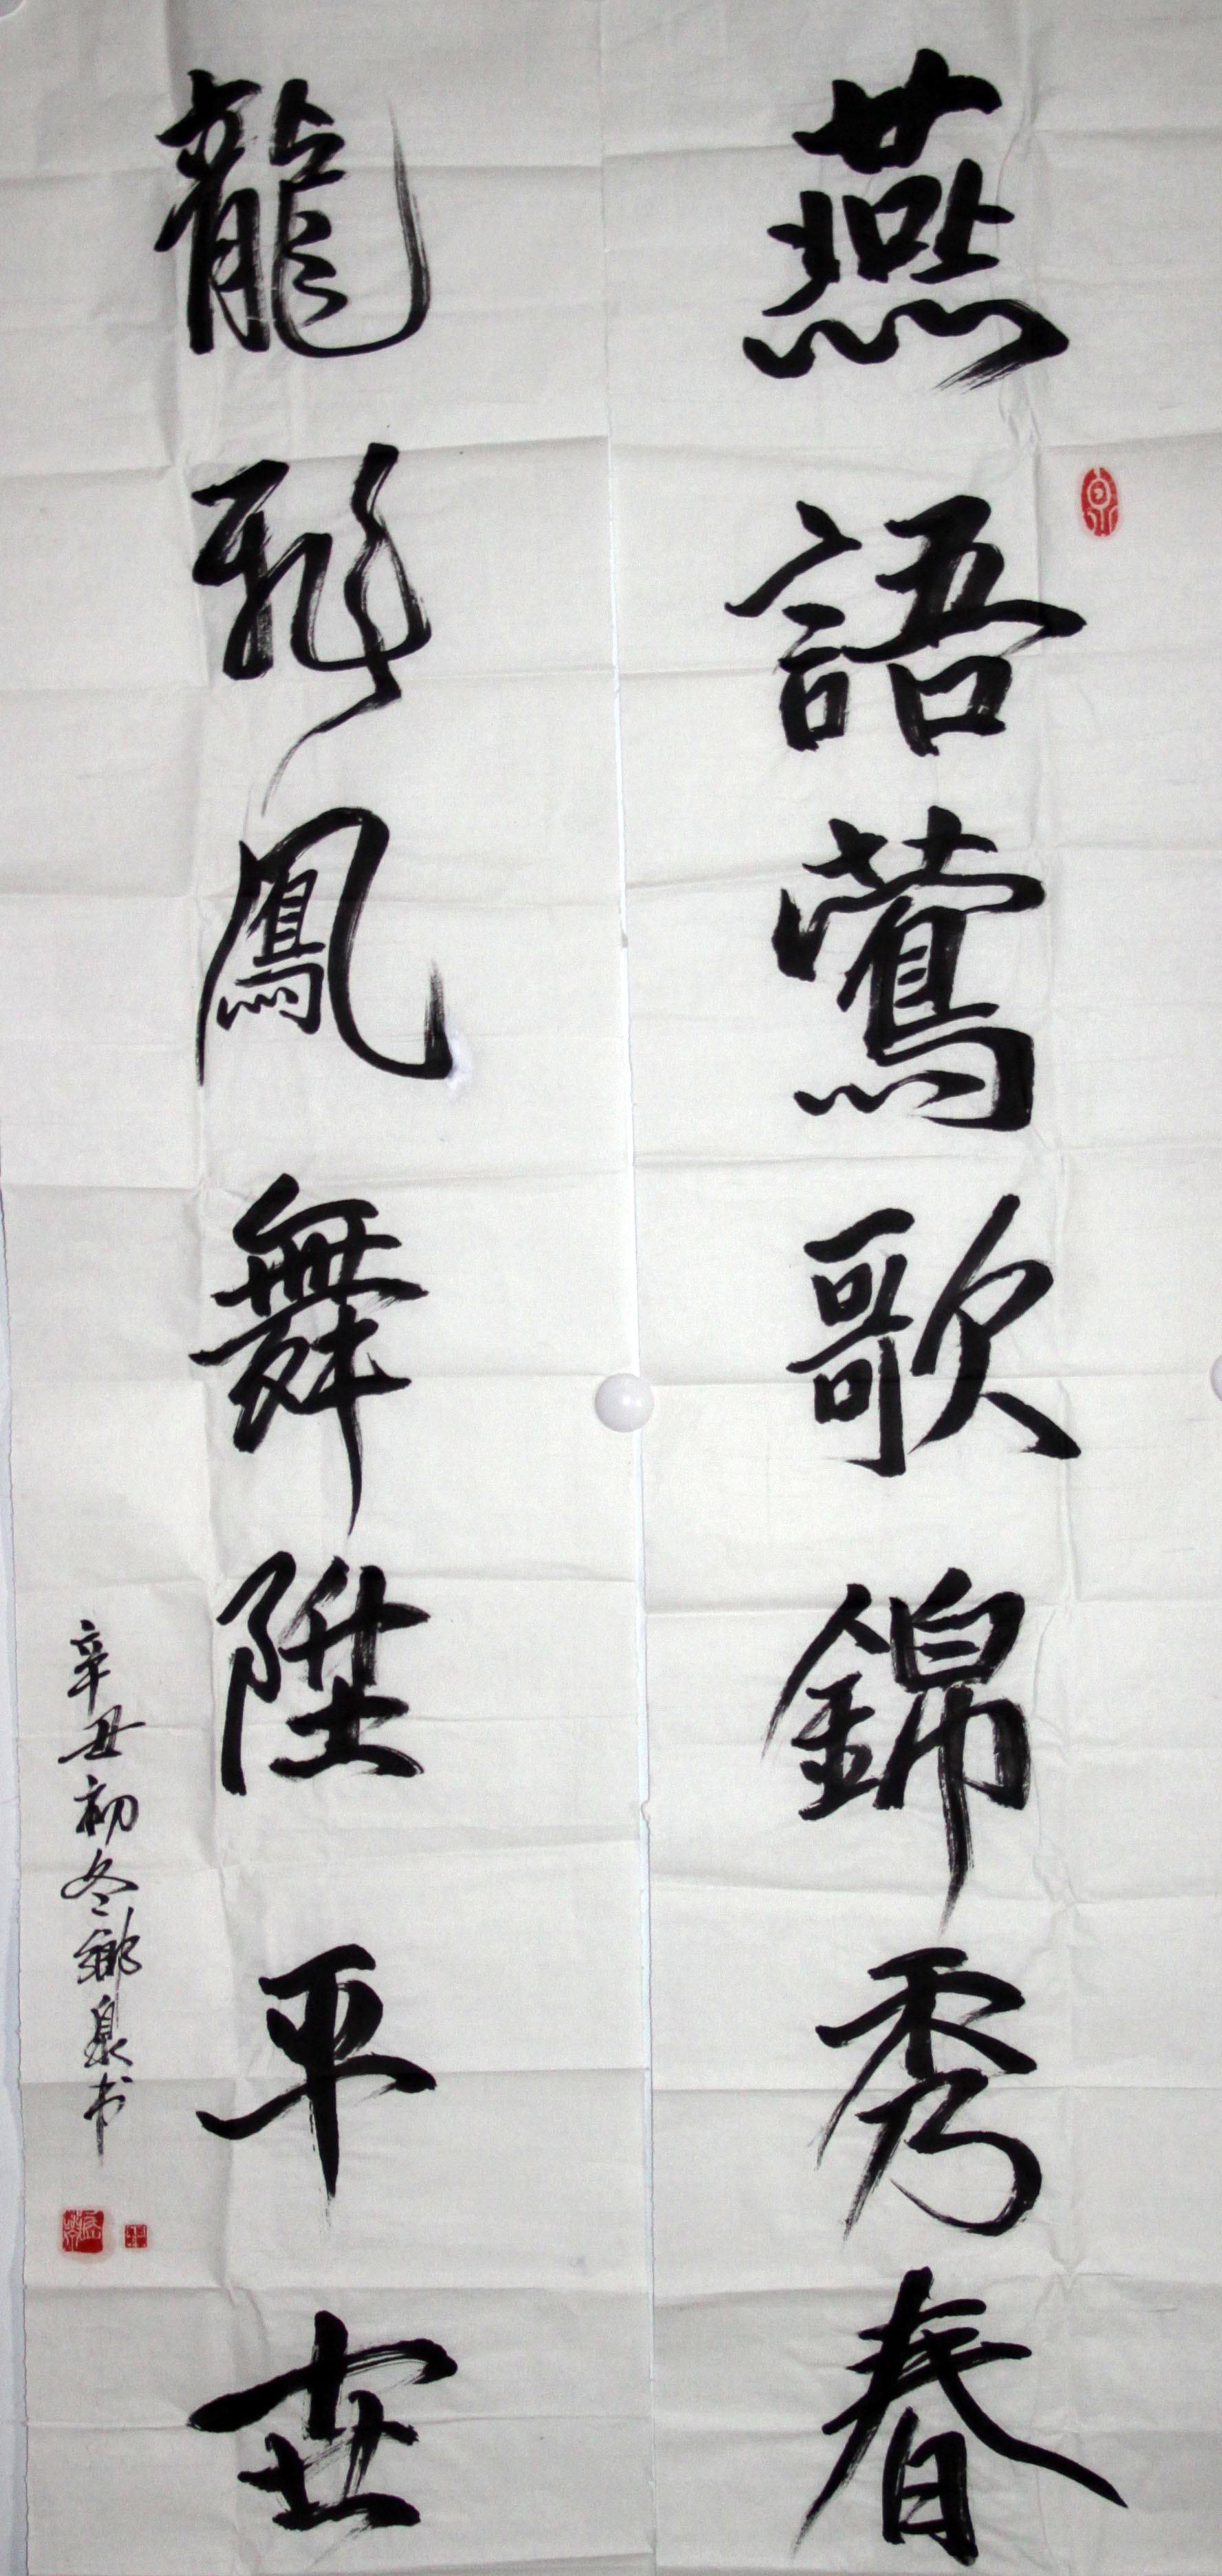 燕語鶯歌錦秀春
龍飛鳳舞陞平世
辛丑初冬鄉泉书